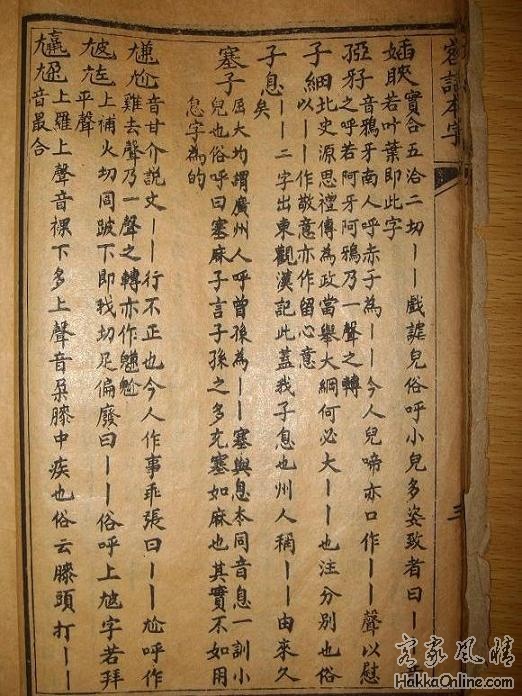 客話本字
三
實合五洽二切丨丨戲謔兒俗呼小兒多姿致者曰丨丨
若叶葉即此字
孲㸦音鴉牙南人呼赤子為丨丨今人兒啼亦口作丨丨聲以慰
之呼若阿牙阿鴉乃一聲之轉
子細北史源思禮傳為政當舉大綱何必大丨丨也注分別也俗
以丨丨作敬意亦作留心意
子息丨丨二字出東觀漢記此蓋我子息也州人稱丨丨由來久
矣
塞子屈大均謂廣州人呼曾孫為丨丨塞與息本同音息一訓小
兒也俗呼曰塞麻子言子孫之多充塞如麻也其實不如用
息字為的
尲尬音甘介說文丨丨行不正也今人作事乖張曰丨丨尬呼作
雞去聲乃一聲之轉亦作魐魀
上補火切同跛下即我切足偏廢曰丨丨俗呼上尳字若拜
平聲
上羅上聲音裸下多上聲音朵膝中疾也俗云膝頭打丨丨
音最合
客家風情
HakkaOnline.com